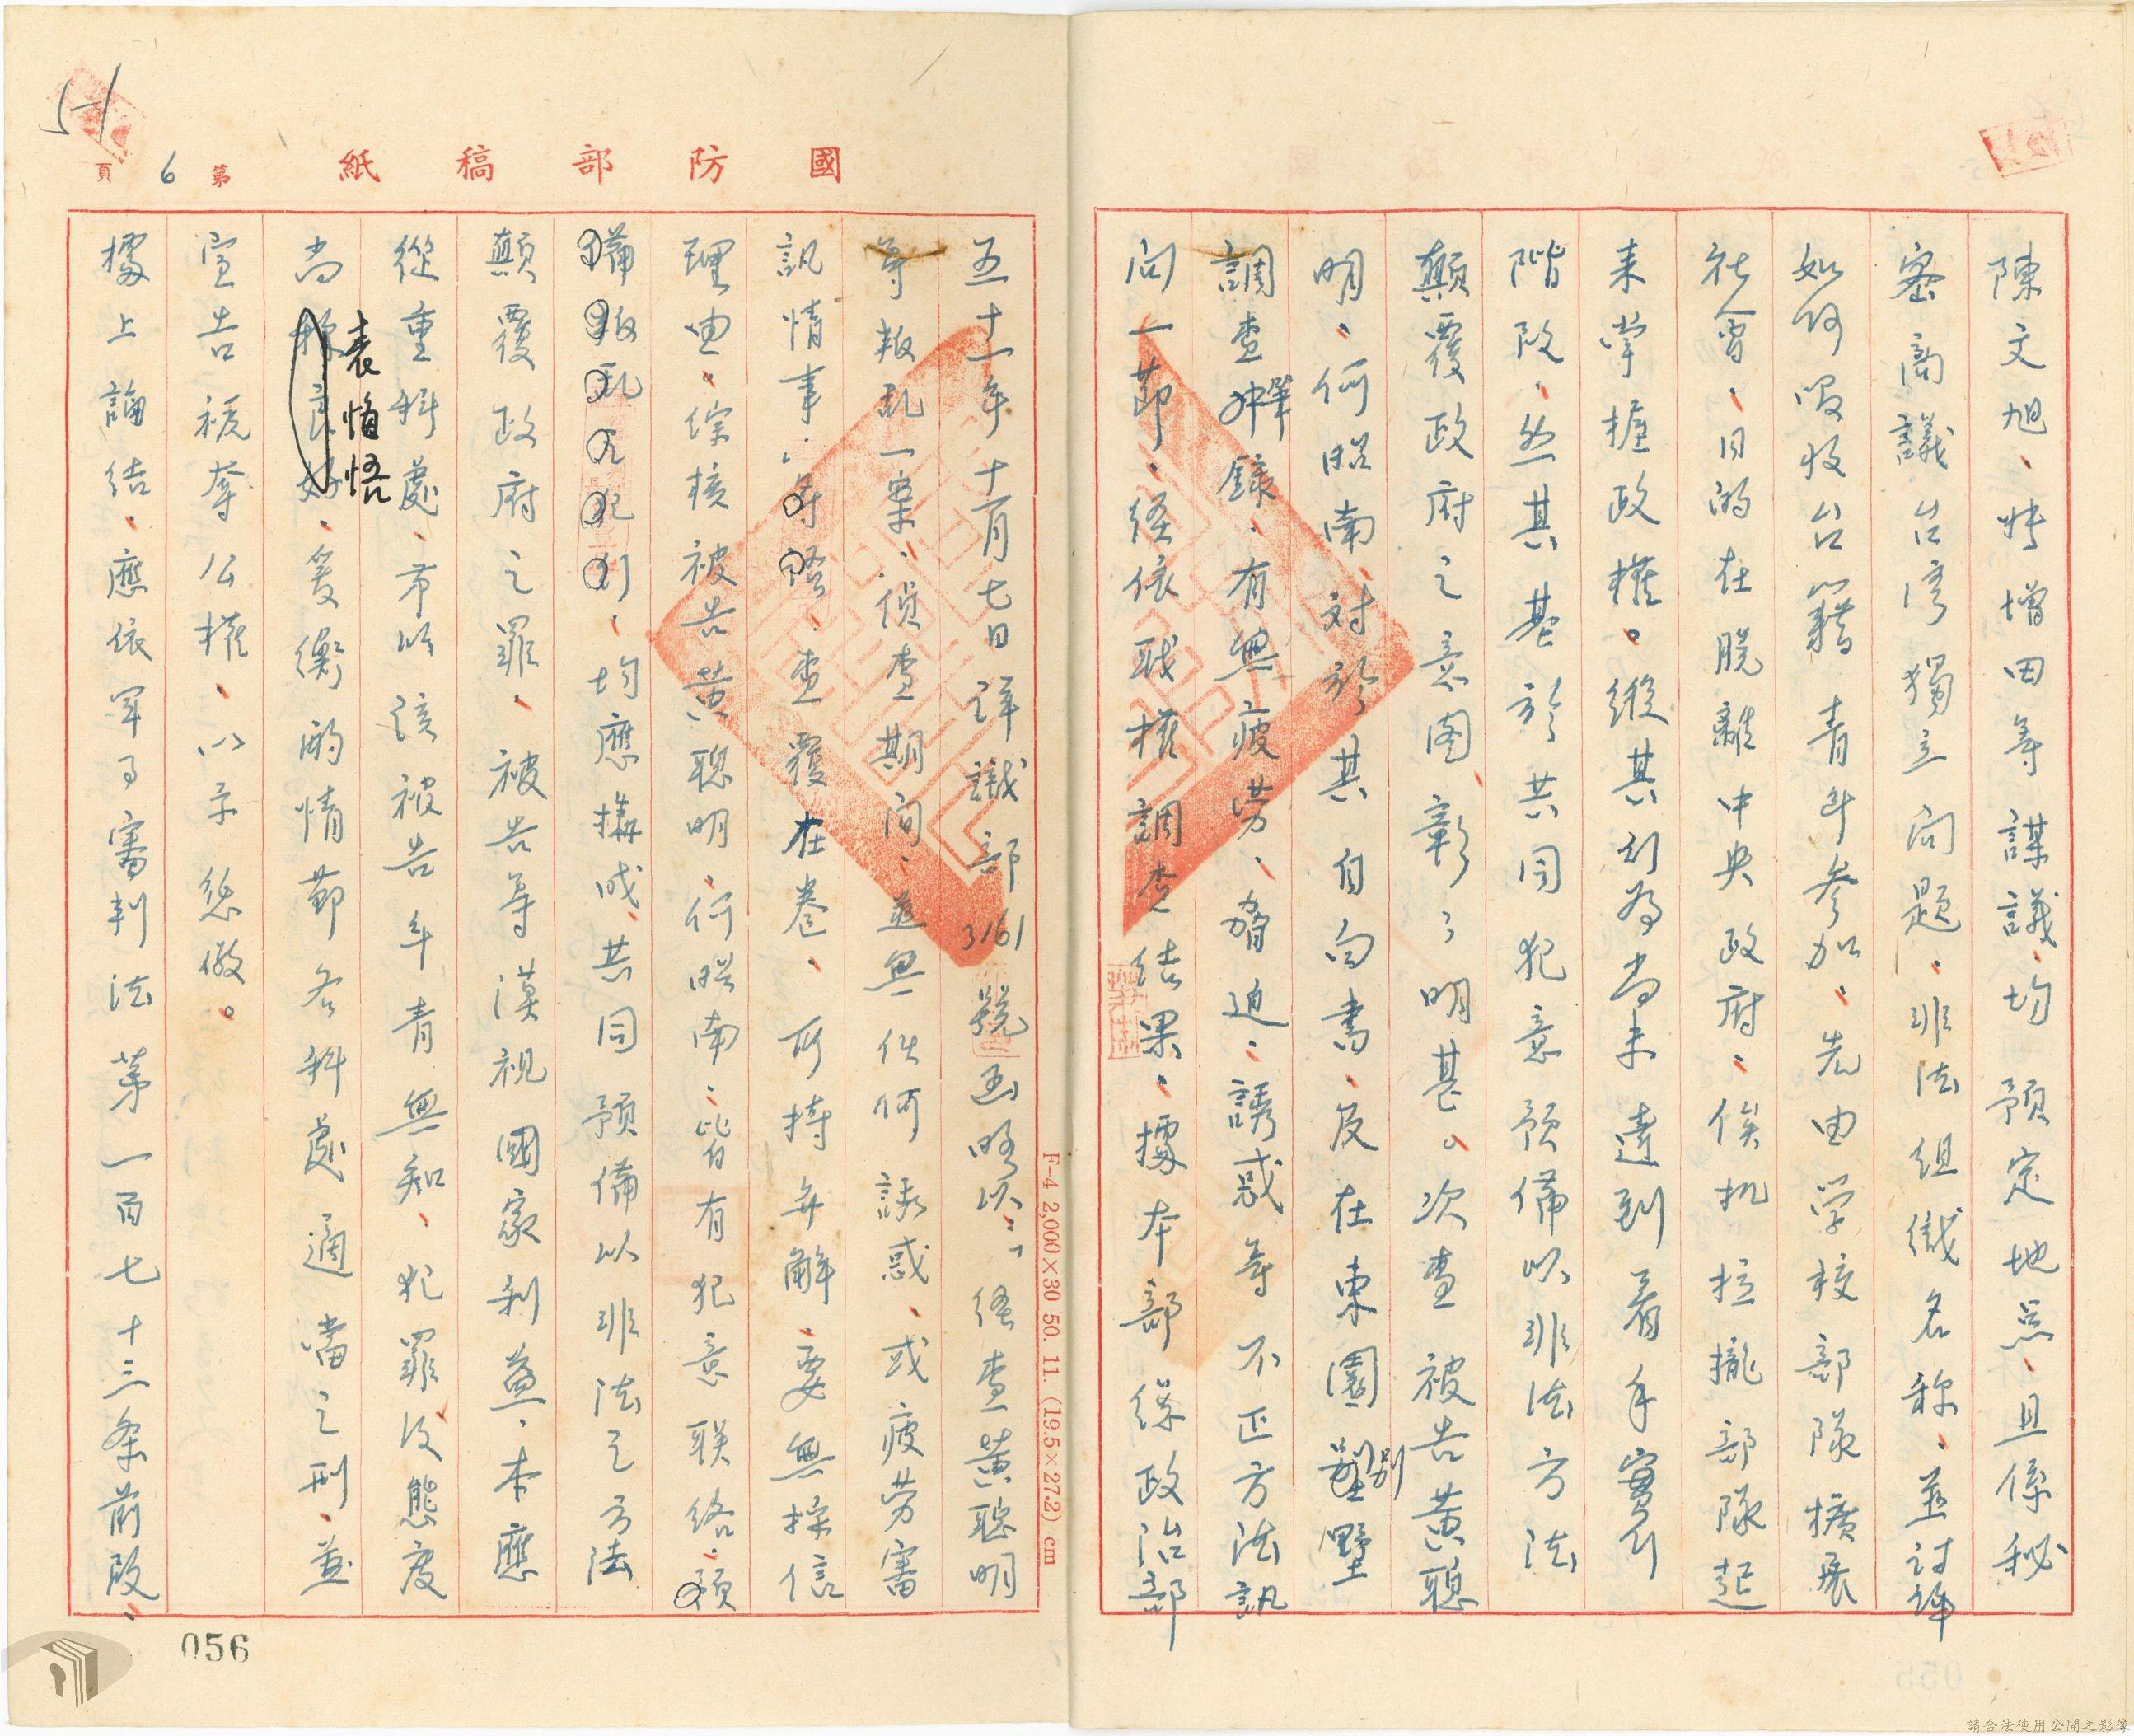 陳文旭、
增田等謀議、均預定地点、且係秘
密商議台湾獨立問題、非法組織名称、並討論
如何吸收台籍青年參加、先由学校部隊擴展
社會、目的在脫離中央政府、俟机拉攏部隊起
來掌握政權。縱其行為尚未達到着手實行
階段、然其基於共同犯意預備以非法方法
顛覆政府之意图、彰彰明甚。次查被告黃聰
明、何昭南對於其自白書、及在東園別墅
調查筆錄、有無疲劳、脅迫、誘惑等不正方法訊
问一節、經依职權調查結果、據本部綜政治部
國防部稿紙
第6頁
五十一年十一月七日詳誠部3161號函略以：「經查黃聰明
等叛乱一案、偵查期间、並無任何誘惑、或疲劳審
訊情事。」等語、查覆在卷、所持弁解、要無採信
理由。綜核被告黃聰明、何昭南、皆有犯意联络、預
備叛乱之犯行、均應構成共同預備以非法之方法
顛覆政府之罪、被告等漠視國家利益、本應
從重科處、市以該被告年青無知、犯罪後態度
尚表悔悟、爰衡酌情節各科處適當之刑、並
宣告褫奪公權、以示懲儆。
據上論結、應依軍事審判法第一百七十三条前段、
F-4 2,000×30 50. 11. (19.5×27.2) cm
056
請合法使用公開之影像